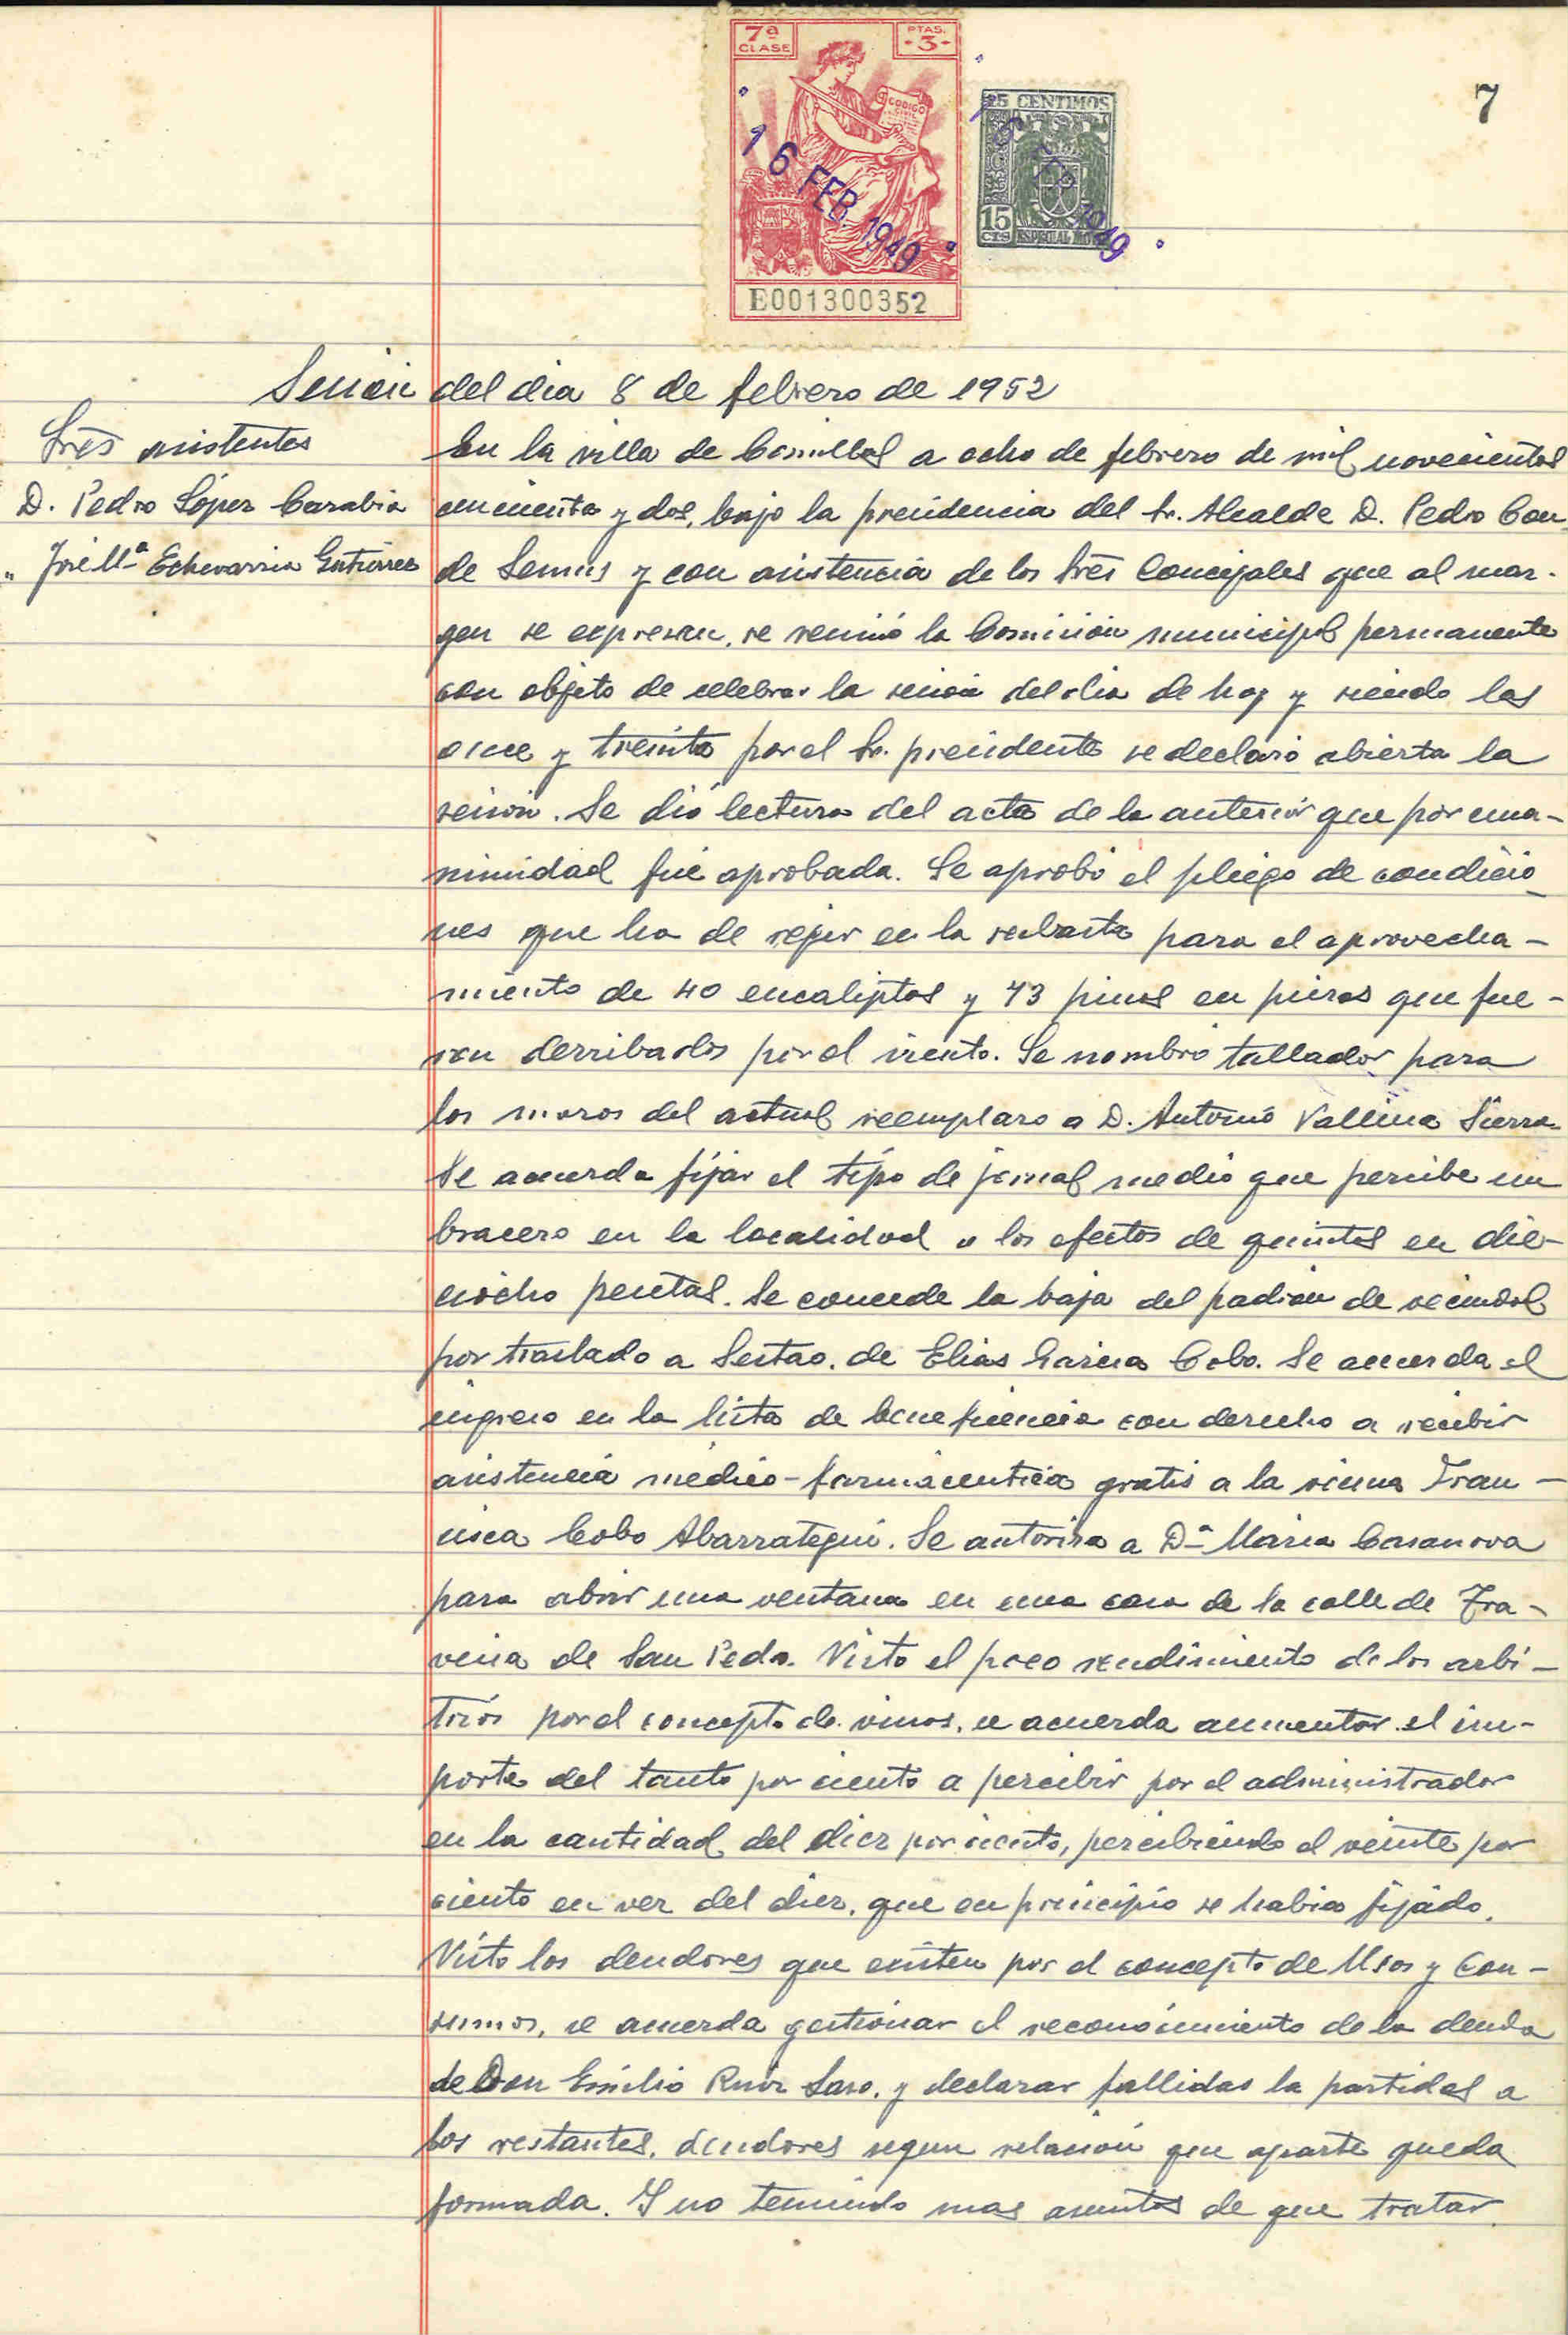 7ª
CLASE
PTAS.
-3-
CODIGO
CIVIL
16 FEB 1949
E001300352
25 CENTIMOS
15
CTS
ESPECIAL MOVIL
16 FEB 1949
7
Sesión del dia 8 de febrero de 1952
Sres asistentes
D. Pedro López Carabia
" José Mª Echevarria Gutiérrez
En la villa de Comillas a ocho de febrero de mil novecientos
cincuenta y dos, bajo la presidencia del Sr. Alcalde D. Pedro Con
de y con asistencia de los Sres Concejales que al mar-
gen se expresan, se reunió la Comisión municipal permanente
con objeto de celebrar la sesión del dia de hoy y siendo las
once y treinta por el Sr. presidente se declaró abierta la
sesión. Se dió lectura del acta de la anterior que por una-
nimidad fué aprobada. Se aprobó el pliego de condicio
nes que ha de regir en la subasta para el aprovecha-
miento de 40 eucaliptos y 43 pinos en piezas que fue-
ron derribados por el viento. Se nombró tallador para
los mozos del actual reemplazo a D. Antonio Vallina Sierra
Se acuerda fijar el tipo de jornal medio que percibe un
bracero en la localidad a los efectos de quintas en die-
ciocho pesetas. Se concede la baja del padrón de vecindad
por traslado a Sestao, de Elias Garcia Cobo. Se acuerda el
ingreso en la lista de beneficiencia con derecho a recibir
asistencia médico-farmacéutica gratis a la vecina Fran-
cisca Cobo Abarrategui. Se autoriza a Dª Maria Casanova
para abrir una ventana en una casa de la calle de Tra-
vesia de San Pedro. Visto el poco rendimiento de los arbi-
trios por el concepto de vinos, se acuerda aumentar el im-
porte del tanto por ciento a percibir por el administrador
en la cantidad del diez por ciento, percibiendo el veinte por
ciento en vez del diez, que en principio se habia fijado.
Visto los deudores que existen por el concepto de Usos y Con-
sumos, se acuerda gestionar el reconocimiento de la deuda
de Don Emilio Ruiz Saro, y declarar fallidas la partidas a
los restantes, deudores segun relación que aparte queda
formada. Y no teniendo mas asuntos de que tratar